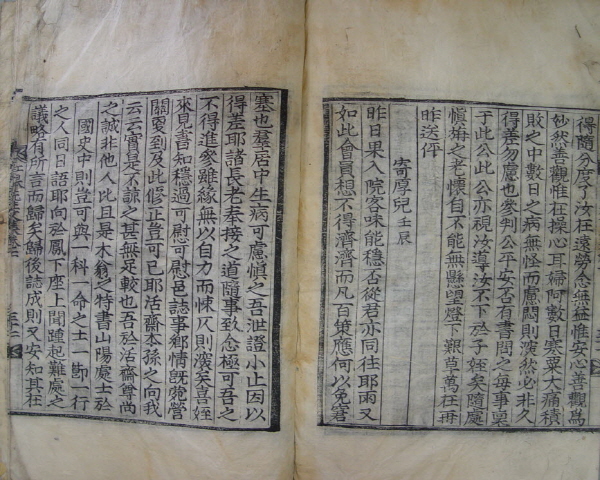 得隨分度了汝往遠勞念無益惟安心善觀爲
妙然善觀惟在操心耳婦阿數日塞粟大痛積
敗之中數日之病無怪而慮悶則深然必非久
得差勿慮也參判公平安否有書問之每事稟
于此公此公亦視汝導汝不下於子姪矣隨處
愼旃之老懷自不能無懸望燈下艱草萬在再
昨送伻
寄厚兒 壬辰
昨日果入院客味能穩否從君亦同往耶雨又
如此會員想不得濟濟而凡百策應何以免窘
塞也羣居中生病可慮愼之吾泄證小止因以
得差耶諸長老奉接之道隨事致念極可吾之
不得進參雖緣無以自力而悚仄則深矣喜姪
來見書知穩過可慰可慰邑誌事鄕情旣弛營
關更到及此修正豈可已耶活齋本孫之向我
云云實是不諒之甚無足較也吾於活齋尊尚
之誠非他人比且木翁之特書山陽處士於
國史中則豈可與一科一命之士一節一行
之人同日語耶向於鳳下座上聞踵起難處之
議略有所言而歸矣歸後誌成則又安知其在